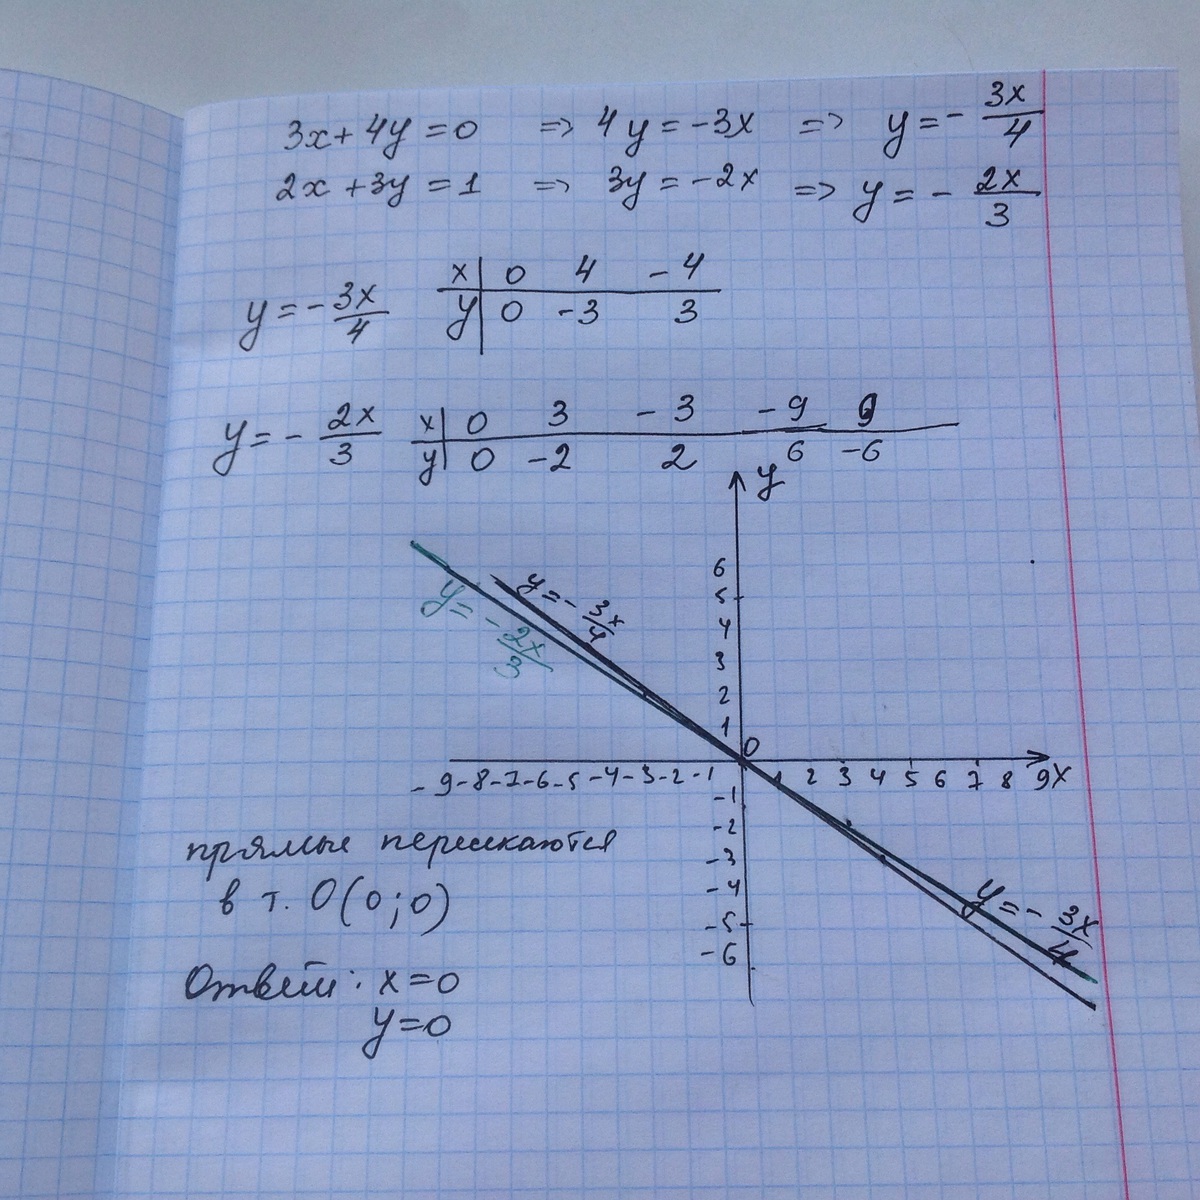 3x+4y=0 => 4y=-3x => y=-3x/4
2x+3y=1 => 3y=-2x => y=-2x/3
y=-3x/4 x | 0 4 -4
y | 0 -3 3
y=-2x/3 x | 0 3 -3 -9 9
y | 0 -2 2 6 -6
y
6
5
4
3
2
1
y=-3x/4
y=-2x/3
0
-9 -8 -7 -6 -5 -4 -3 -2 -1 1 2 3 4 5 6 7 8 9 x
-1
-2
-3
-4
-5
-6
y=-3x/4
прямые пересекаются
в т. O(0;0)
Ответ: x=0
y=0